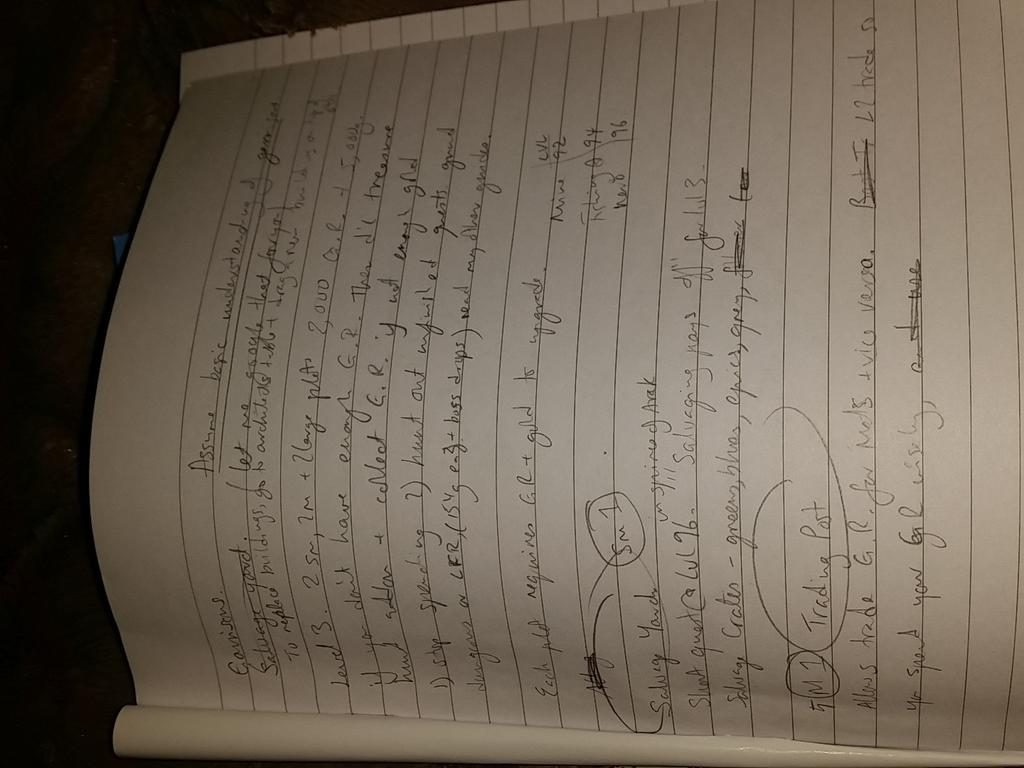 Assume basic understanding of garrison
Garrisons.
Salvage yard. (let me google that foryou)
To replace buildings, go to architects table + drag new buildings
Level 3. 2 sm, 2m + 2 large plots 2,000 G.R. + 5,000g.
if you don't have enough G.R. Then kill treasure
hunt addon + collect G.R. if not enough gold
1) stop spending 2) hunt out unfinished quests grind
dungeons or LFR, (154g ea3 + boss drops) read my other guides.
Each plot requires G.R + gold to upgrade.
Lvl
Mine 92
Fishing @ 94
Herb 96
Sm 1
Salvage Yard in spires of Arak
Start quest @ Lvl 96. "Salvaging pays off" for lvl 3.
Salvage Crates - greens, blues, epics, grey,
M 1 Trading Post
Allows trade G.R. for mats + vice versa. L2 trade so
you spend your G.R wisely,